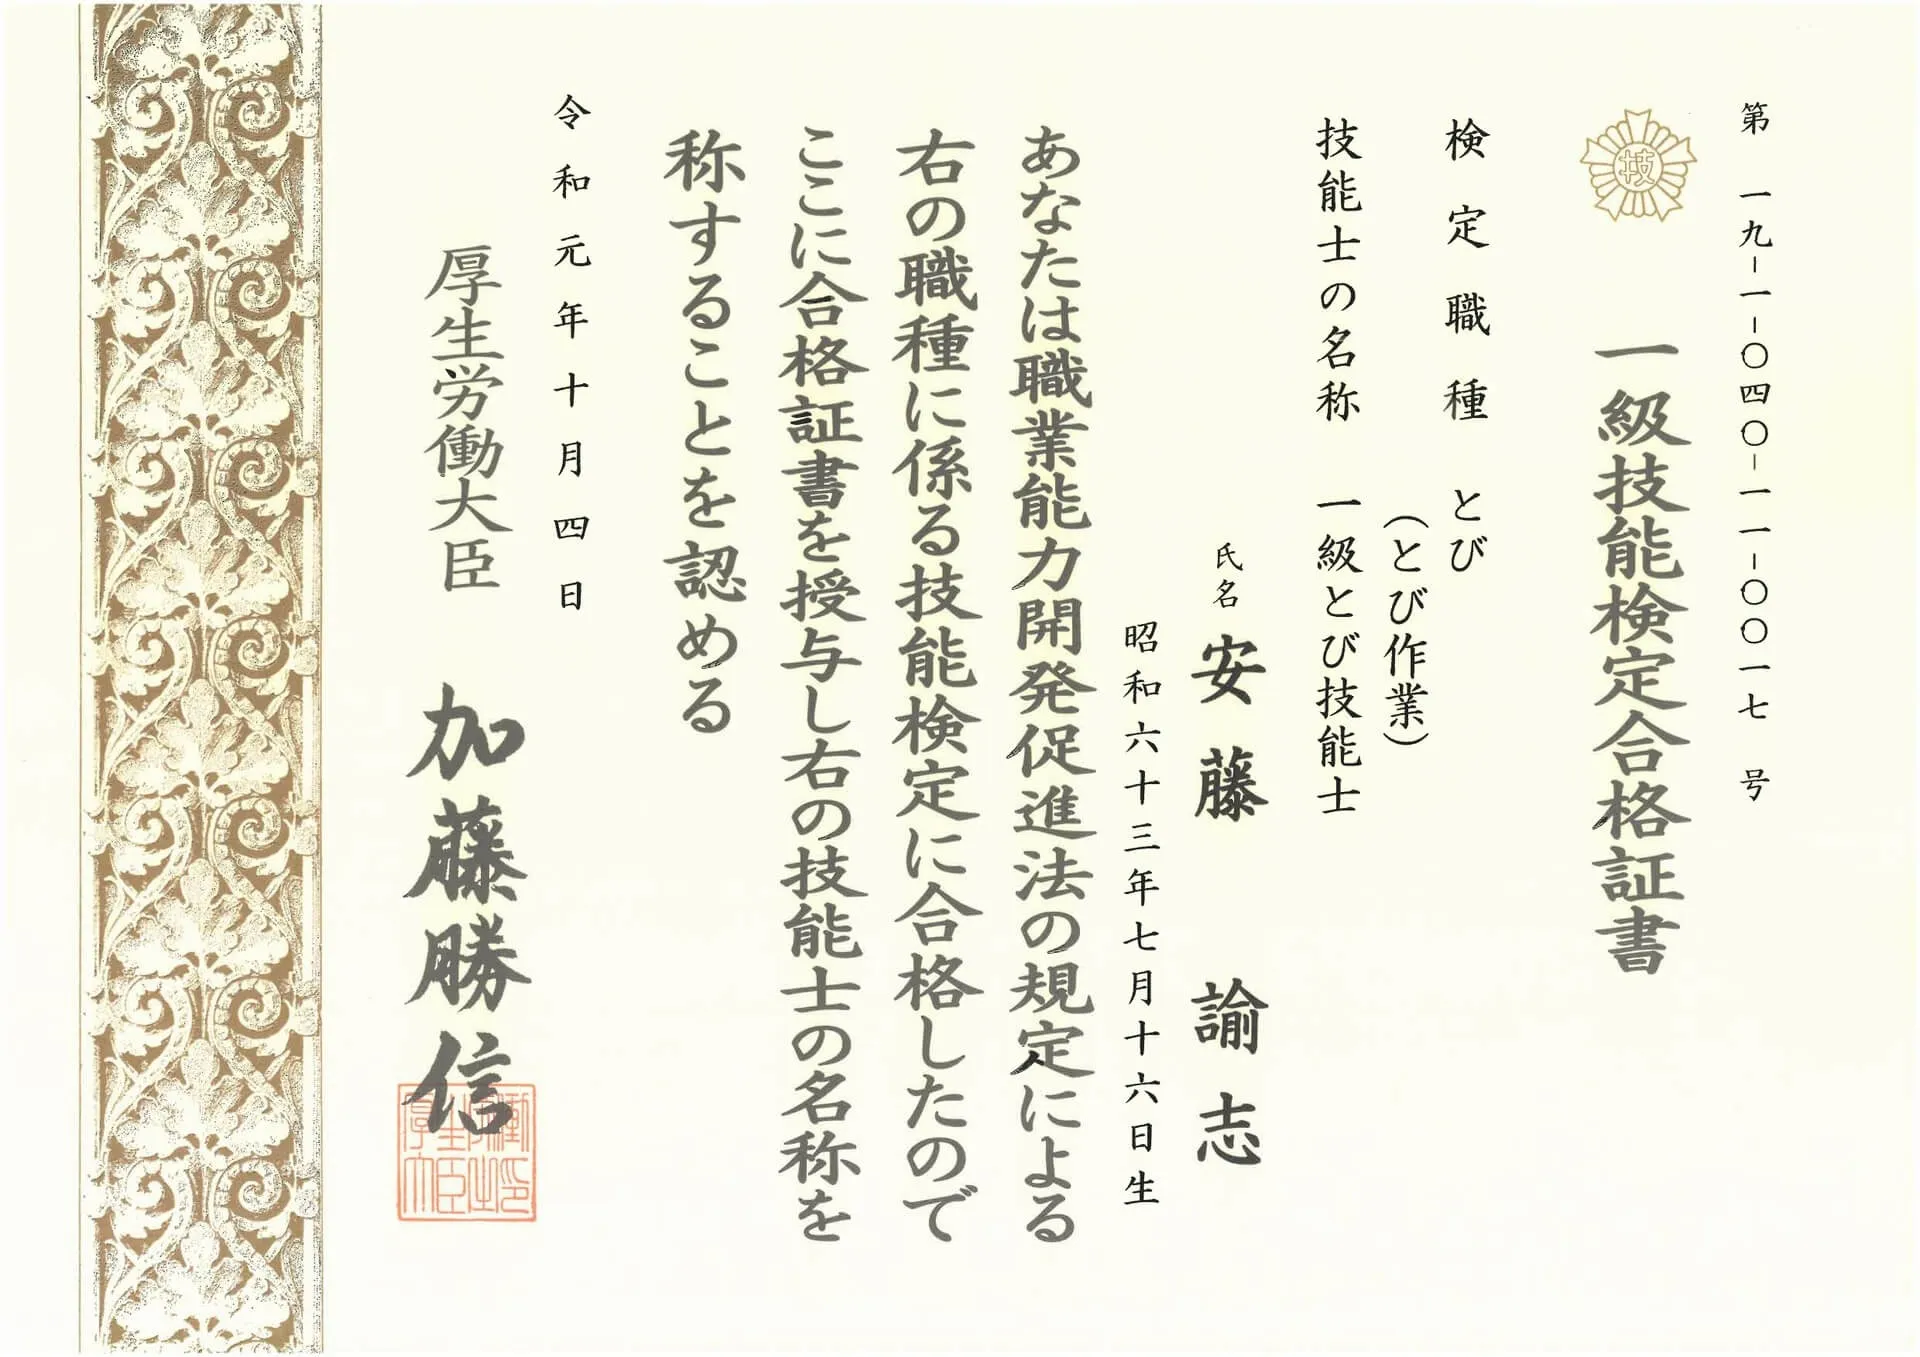 第 一九-一-〇四〇-一一-〇〇一七 号
技
一級技能検定合格証書
検定職種 とび
(とび作業)
技能士の名称 一級とび技能士
氏名 安藤 諭志
昭和六十三年七月十六日生
あなたは職業能力開発促進法の規定による
右の職種に係る技能検定に合格したので
ここに合格証書を授与し右の技能士の名称を
称することを認める
令和元年十月四日
厚生労働大臣 加藤勝信